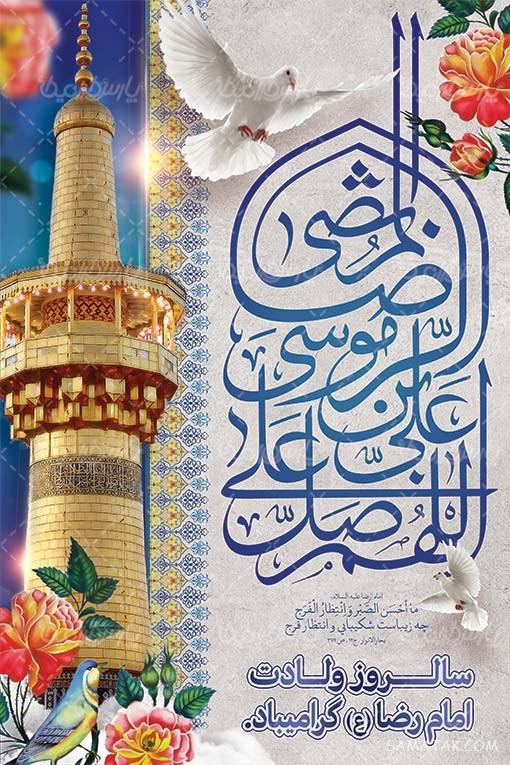 اللهم صل علی
علی بن موسی
الرضا المرتضی
امام رضا علیه السلام:
مٰا أحْسَنَ الصَّبْرَ وَ انْتِظارَ الْفَرَجِ
چه زیباست شکیبایی و انتظار فرج
بحارالانوار، ج
سالروز ولادت
امام رضا (ع) گرامیباد.
SAMATAK.COM